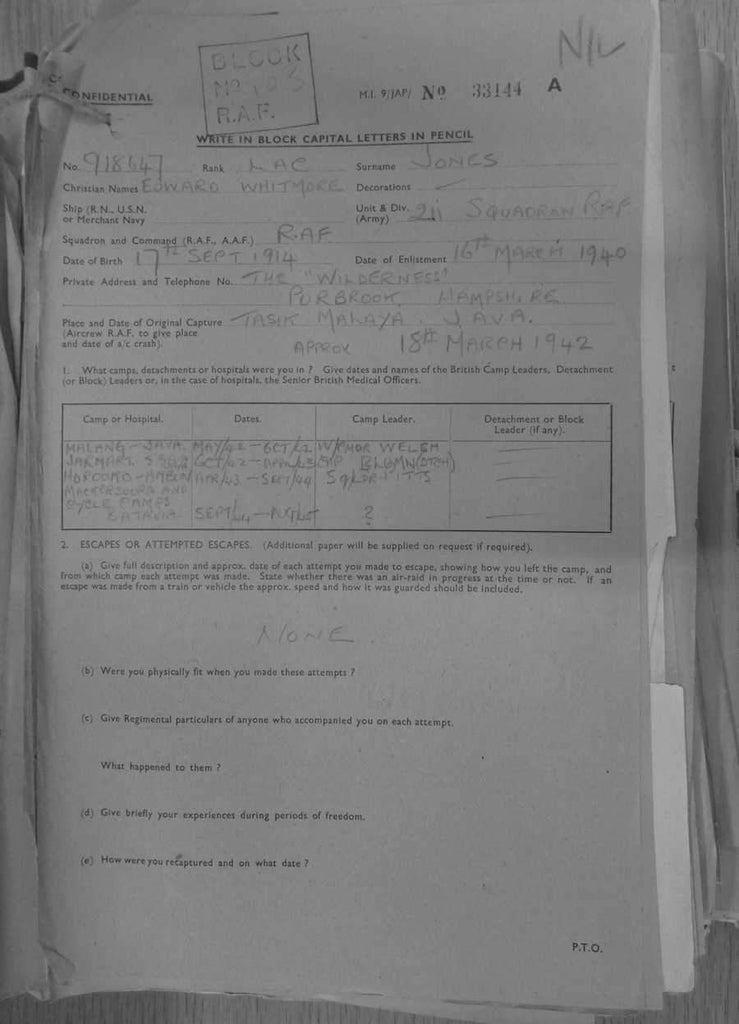 N/L
BLOCK
Nº 103
R.A.F.
CONFIDENTIAL
M.I. 9/JAP/ Nº 33144 A
WRITE IN BLOCK CAPITAL LETTERS IN PENCIL
No. 918647 Rank LAC Surname JONES
Christian Names EDWARD WHITMORE Decorations
Ship (R.N., U.S.N. or Merchant Navy Unit & Div. (Army) 211 SQUADRON RAF
Squadron and Command (R.A.F., A.A.F.) RAF
Date of Birth 17TH SEPT 1914 Date of Enlistment 16TH MARCH 1940
Private Address and Telephone No. THE "WILDERNESS"
PURBROOK, HAMPSHIRE
Place and Date of Original Capture TASIK MALAYA, JAVA.
(Aircrew R.A.F. to give place
and date of a/c crash). APPROX 18TH MARCH 1942
1. What camps, detachments or hospitals were you in ? Give dates and names of the British Camp Leaders, Detachment
(or Block) Leaders or, in the case of hospitals, the Senior British Medical Officers.
Camp or Hospital. Dates. Camp Leader. Detachment or Block
Leader (if any).
MALANG - JAVA. MAY/42 - OCT/42 W/CMDR WELSH
OCT/42 - APRIL/43
APR/43 - SEPT/44 SqLDR PITTS
AND
CYCLE CAMPS
BATAVIA SEPT/44 - ?
2. ESCAPES OR ATTEMPTED ESCAPES. (Additional paper will be supplied on request if required).
(a) Give full description and approx. date of each attempt you made to escape, showing how you left the camp, and
from which camp each attempt was made. State whether there was an air-raid in progress at the time or not. If an
escape was made from a train or vehicle the approx. speed and how it was guarded should be included.
NONE.
(b) Were you physically fit when you made these attempts ?
(c) Give Regimental particulars of anyone who accompanied you on each attempt.
What happened to them ?
(d) Give briefly your experiences during periods of freedom.
(e) How were you recaptured and on what date ?
P.T.O.